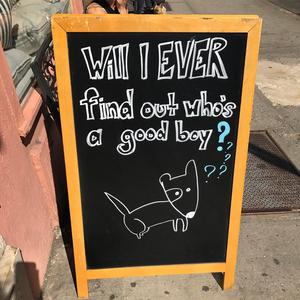 Will I EVER
find out who's
a good boy?
?
?
??